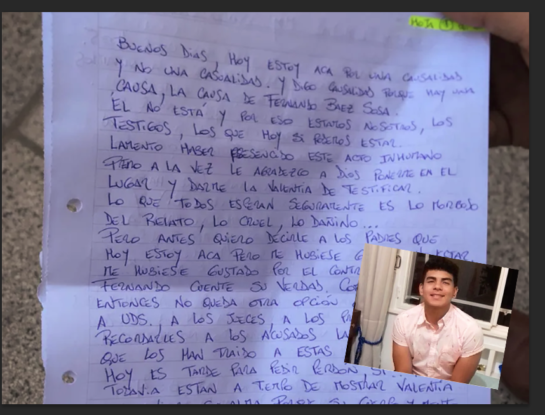 HOJA 1
BUENOS DIAS, HOY ESTOY ACA POR UNA CAUSALIDAD
Y NO UNA CASUALIDAD. Y DIGO CAUSALIDAD PORQUE HAY UNA
CAUSA, LA CAUSA DE FERNANDO BAEZ SOSA.
EL NO ESTÁ Y POR ESO ESTAMOS NOSOTROS, LOS
TESTIGOS, LOS QUE HOY SI PODEMOS ESTAR.
LAMENTO HABER PRESENCIADO ESTE ACTO INHUMANO
PERO A LA VEZ LE AGRADEZCO A DIOS PONERME EN EL
LUGAR Y DARME LA VALENTIA DE TESTIFICAR.
LO QUE TODOS ESPERAN SEGURAMENTE ES LO MORBOSO
DEL RELATO, LO CRUEL, LO DAÑINO...
PERO ANTES QUIERO DECIRLE A LOS PADRES QUE
HOY ESTOY ACA PERO ME HUBIESE ESTAR
ME HUBIESE GUSTADO POR EL CONTR
FERNANDO CUENTE SU VERDAD.
ENTONCES NO QUEDA OTRA OPCIÓN
A UDS., A LOS JUECES A LOS
RECORDARLES A LOS ACUSADOS LA
QUE LOS HAN TRAIDO A ESTAS
HOY ES TARDE PARA PEDIR PERDON,
TODAVIA ESTAN A TIEMPO DE MOSTRAR VALENTIA